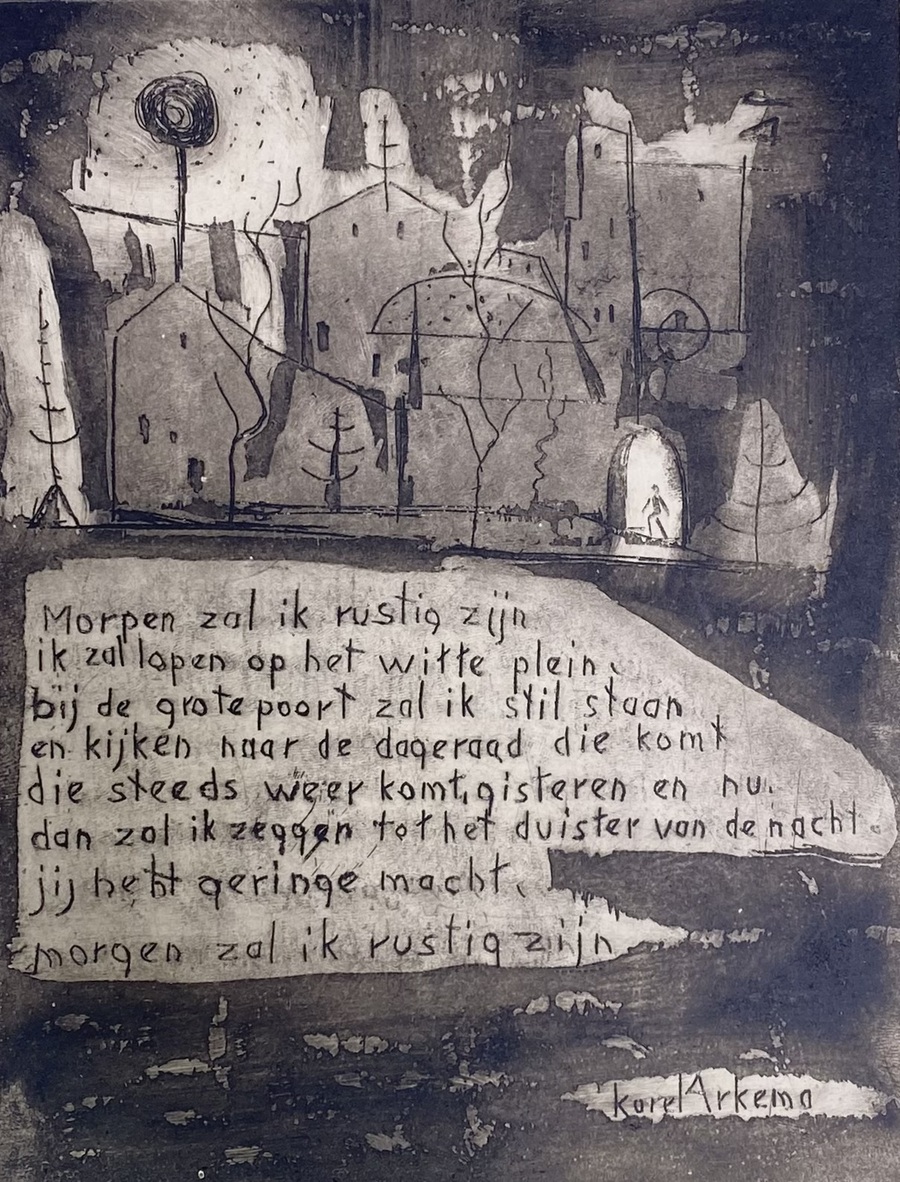 Morpen zal ik rustig zijn
ik zal lopen op het witte plein.
bij de grote poort zal ik stil staan
en kijken naar de dageraad die komt
die steeds weer komt, gisteren en nu.
dan zal ik zeggen tot het duister van de nacht.
jij hebt geringe macht.
morgen zal ik rustig zijn
karel Arkema